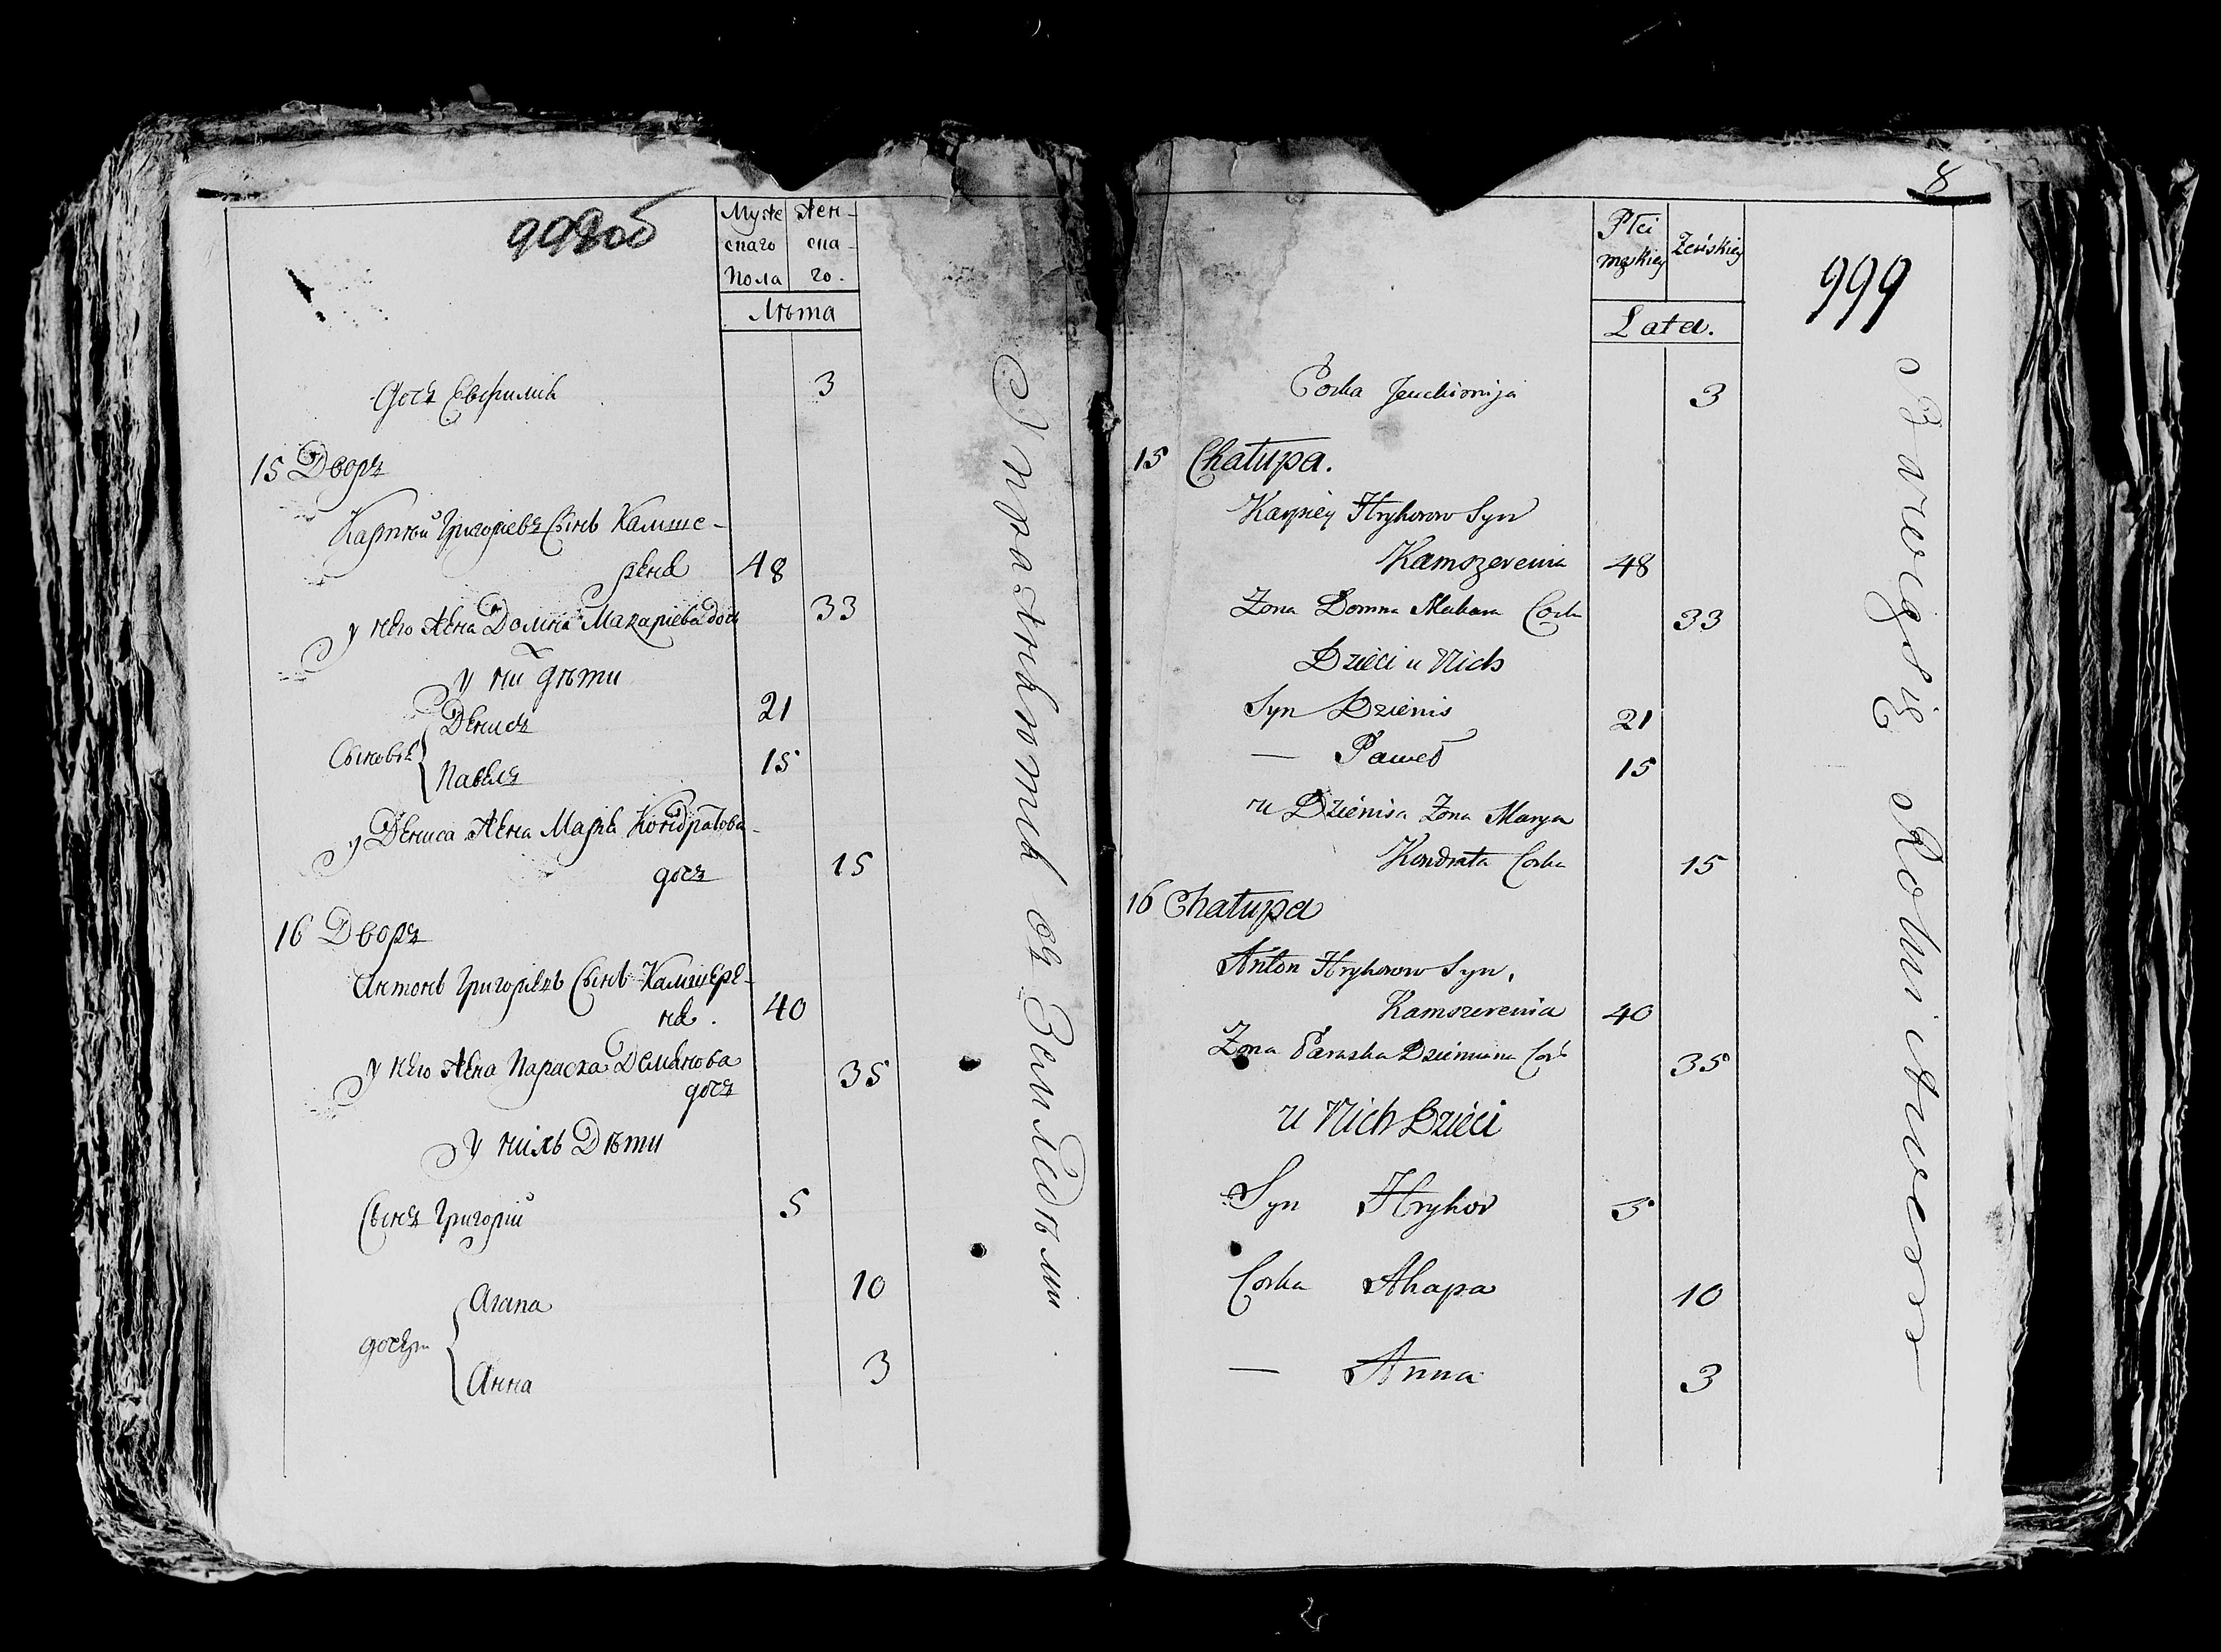 998об
Муже Жен-
скаго ска-
Пола го.
Лѣта
Дочь Евфимія 3
15 Дворъ
Карпѣй Григорьевъ Сынъ Камше-
реня 48
у него Жена Домна Макаріева дочь 33
у них дѣти
Сыновья
Денисъ 21
Павелъ 15
у Дениса Жена Маря Кондратова
дочь 15
16 Дворъ
Антонъ Григорьевъ Сынъ Камшере-
ня. 40
у него Жена Параска Демянова
дочь 35
у нихъ Дѣти
Сынъ Григорій 5
дочери
Агапа 10
Анна 3
Упражняютея въ Земледѣліи
8
999
Płci
męskiey Żeńskiey
Lata.
Corka Jeuchimija 3
15 Chałupa.
Karpiey Hryhorow Syn
Kamszerenia 48
Zona Domna Makara Corka 33
Dzieci u Nich
Syn Dzienis 21
— Paweł 15
u Dzienisa Zona Marya
Kondrata Corka 15
16 Chałupa
Anton Hryhorow Syn,
Kamszerenia 40
Zona Paraska Dziemiana Cor 35
u Nich Dzieci
Syn Hryhor 5
Corka Ahapa 10
— Anna 3
Bawią się Rolnictwem